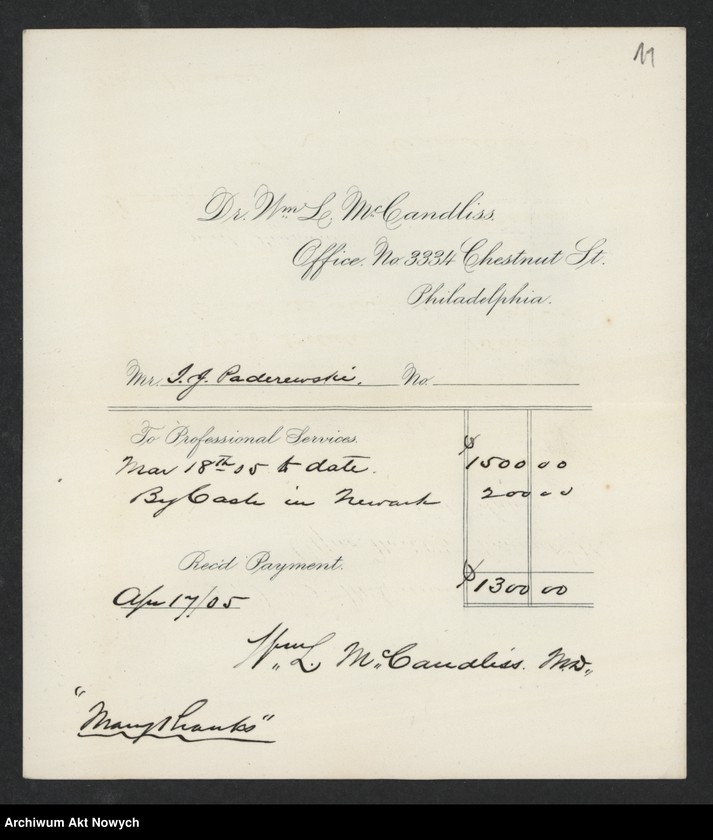 11
Dr. Wm. L. McCandliss.
Office. No. 3334 Chestnut St.
Philadelphia.
Mr. I. J. Paderewski. No.
To Professional Services.
Mar 18th 05 to date. $1500 00
By Cash in Newark 200 00
Rec'd Payment. $1300 00
Apr 17/05
Wm L. McCandliss. M.D.
"Many thanks"
Archiwum Akt Nowych